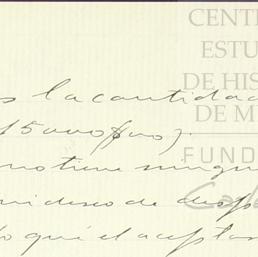 CENTR
ESTU
DE HIS
DE M
FUND
s la cantidad
15000 
no tiene ningu
mi deseo de
lo qué el aceptas